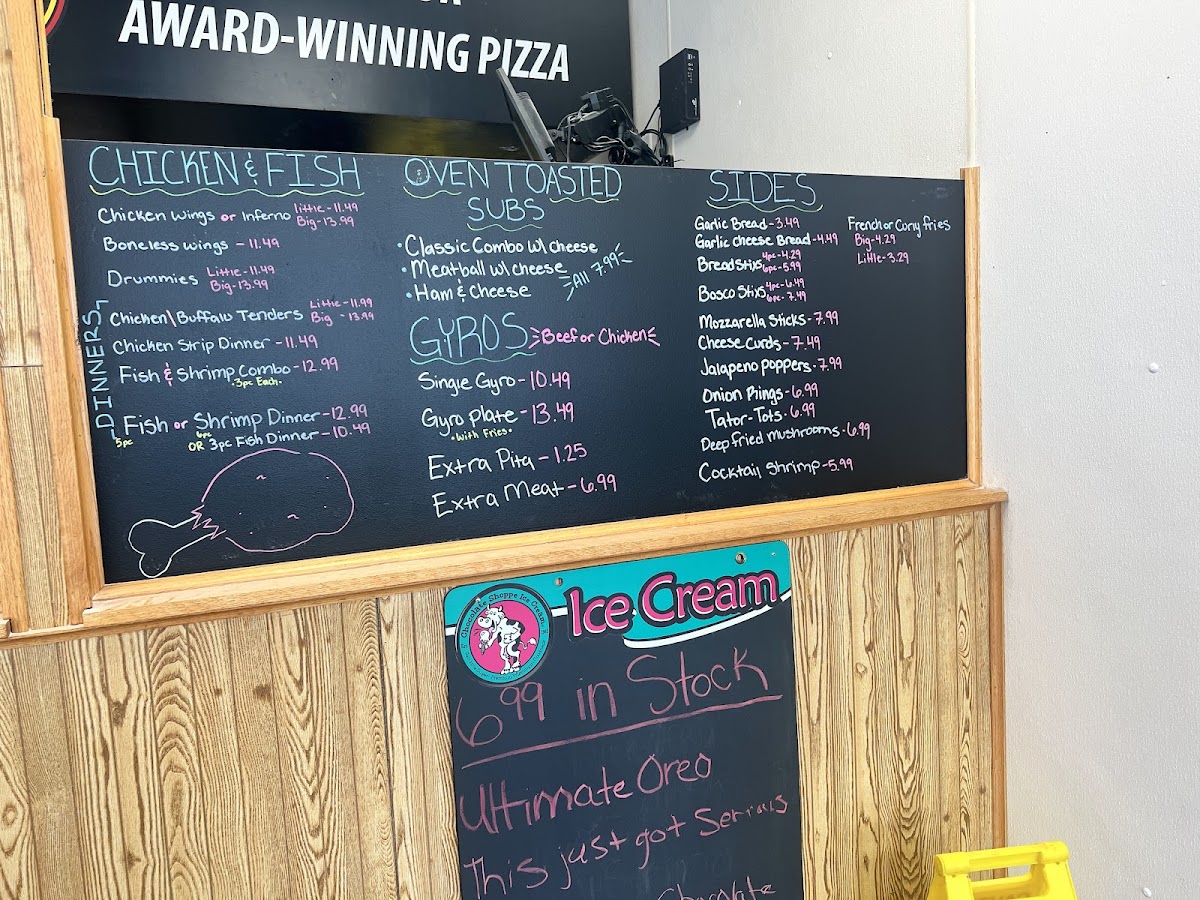 AWARD-WINNING PIZZA
CHICKEN & FISH
Chicken Wings or Inferno Little-11.49
Big-13.99
Boneless Wings - 11.49
Drummies Little-11.49
Big-13.99
DINNERS
Chicken\Buffalo Tenders Little-11.99
Big - 13.99
Chicken Strip Dinner - 11.49
Fish & Shrimp Combo - 12.99
•3pc Each•
Fish or Shrimp Dinner - 12.99
5pc 6pc
OR 3pc Fish Dinner - 10.49
OVEN TOASTED
SUBS
• Classic Combo w/ cheese
• Meatball w/ cheese
• Ham & Cheese
All 7.99
GYROS Beef or Chicken
Single Gyro - 10.49
Gyro Plate - 13.49
•With Fries•
Extra Pita - 1.25
Extra Meat - 6.99
SIDES
Garlic Bread - 3.49
Garlic Cheese Bread - 4.49
BreadStixs 4pc - 4.29
6pc - 5.99
Bosco Stixs 4pc - 6.49
6pc - 7.49
Mozzarella Sticks - 7.99
Cheese Curds - 7.49
Jalapeno Poppers - 7.99
Onion Rings - 6.99
Tator-Tots - 6.99
Deep fried Mushrooms - 6.99
Cocktail Shrimp - 5.99
French or Curly fries
Big-4.29
Little-3.29
Chocolate Shoppe Ice Cream
Ice Cream
6.99 in Stock
Ultimate Oreo
This just got Serious
Chocolate